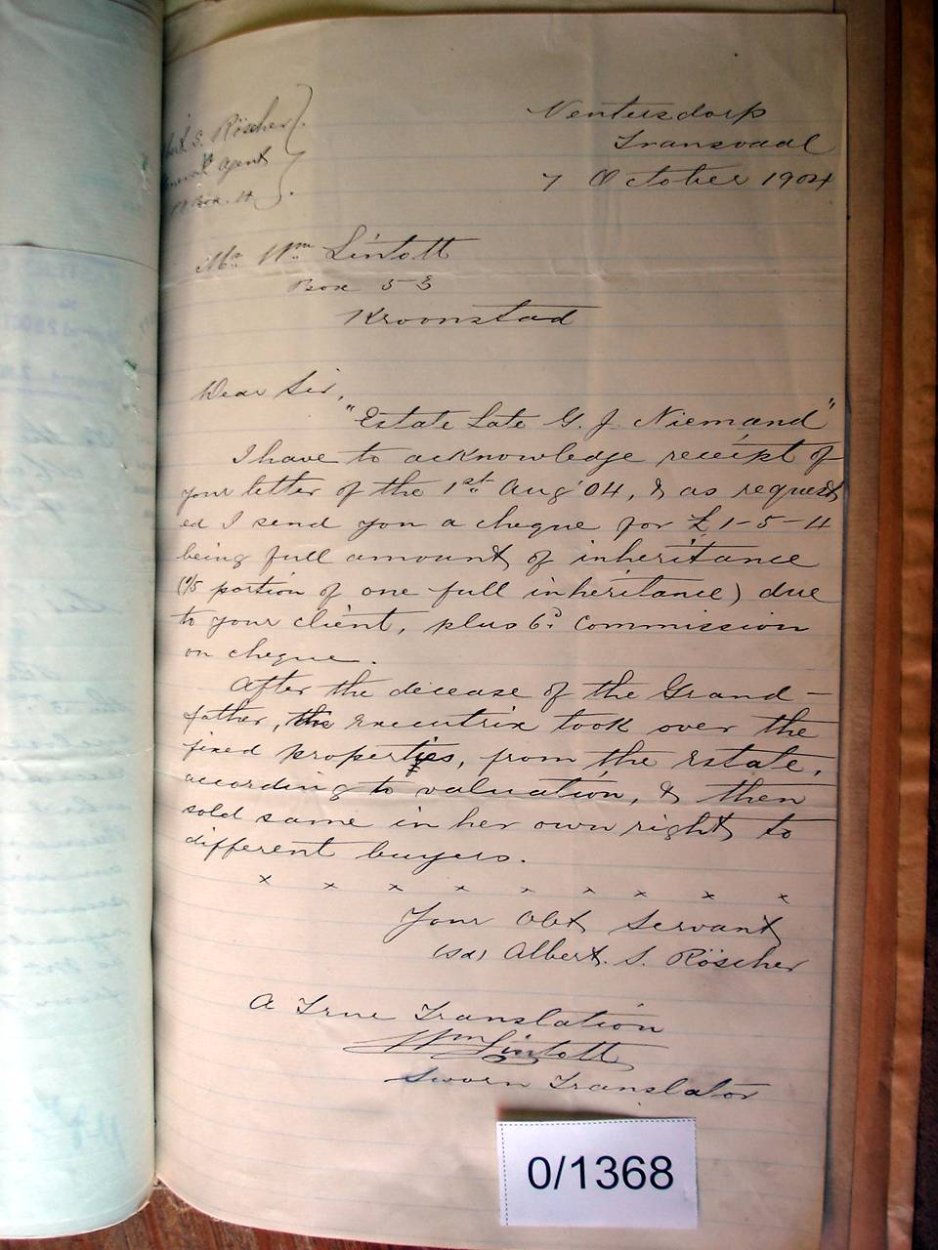 S. Röscher
Agent
Box
Ventersdorp
Transvaal
7 October 1904
Mr. Wm Lintott
Box 53
Kroonstad
Dear Sir,
"Estate Late G. J. Niemand"
I have to acknowledge receipt of
your letter of the 1st. Aug' 04, & as request
ed I send you a cheque for £1-5-4
being full amount of inheritance
(1/5 portion of one full inheritance) due
to your client, plus 6d. Commission
on cheque.
After the decease of the Grand-
father, the Executrix took over the
fixed properties, from the Estate,
according to valuation, & then
sold same in her own right to
different buyers.
x x x x x x x x x
Your Obt Servant
(sd) Albert. S. Röscher
A True Translation
Wm Lintott
Sworn Translator
0/1368